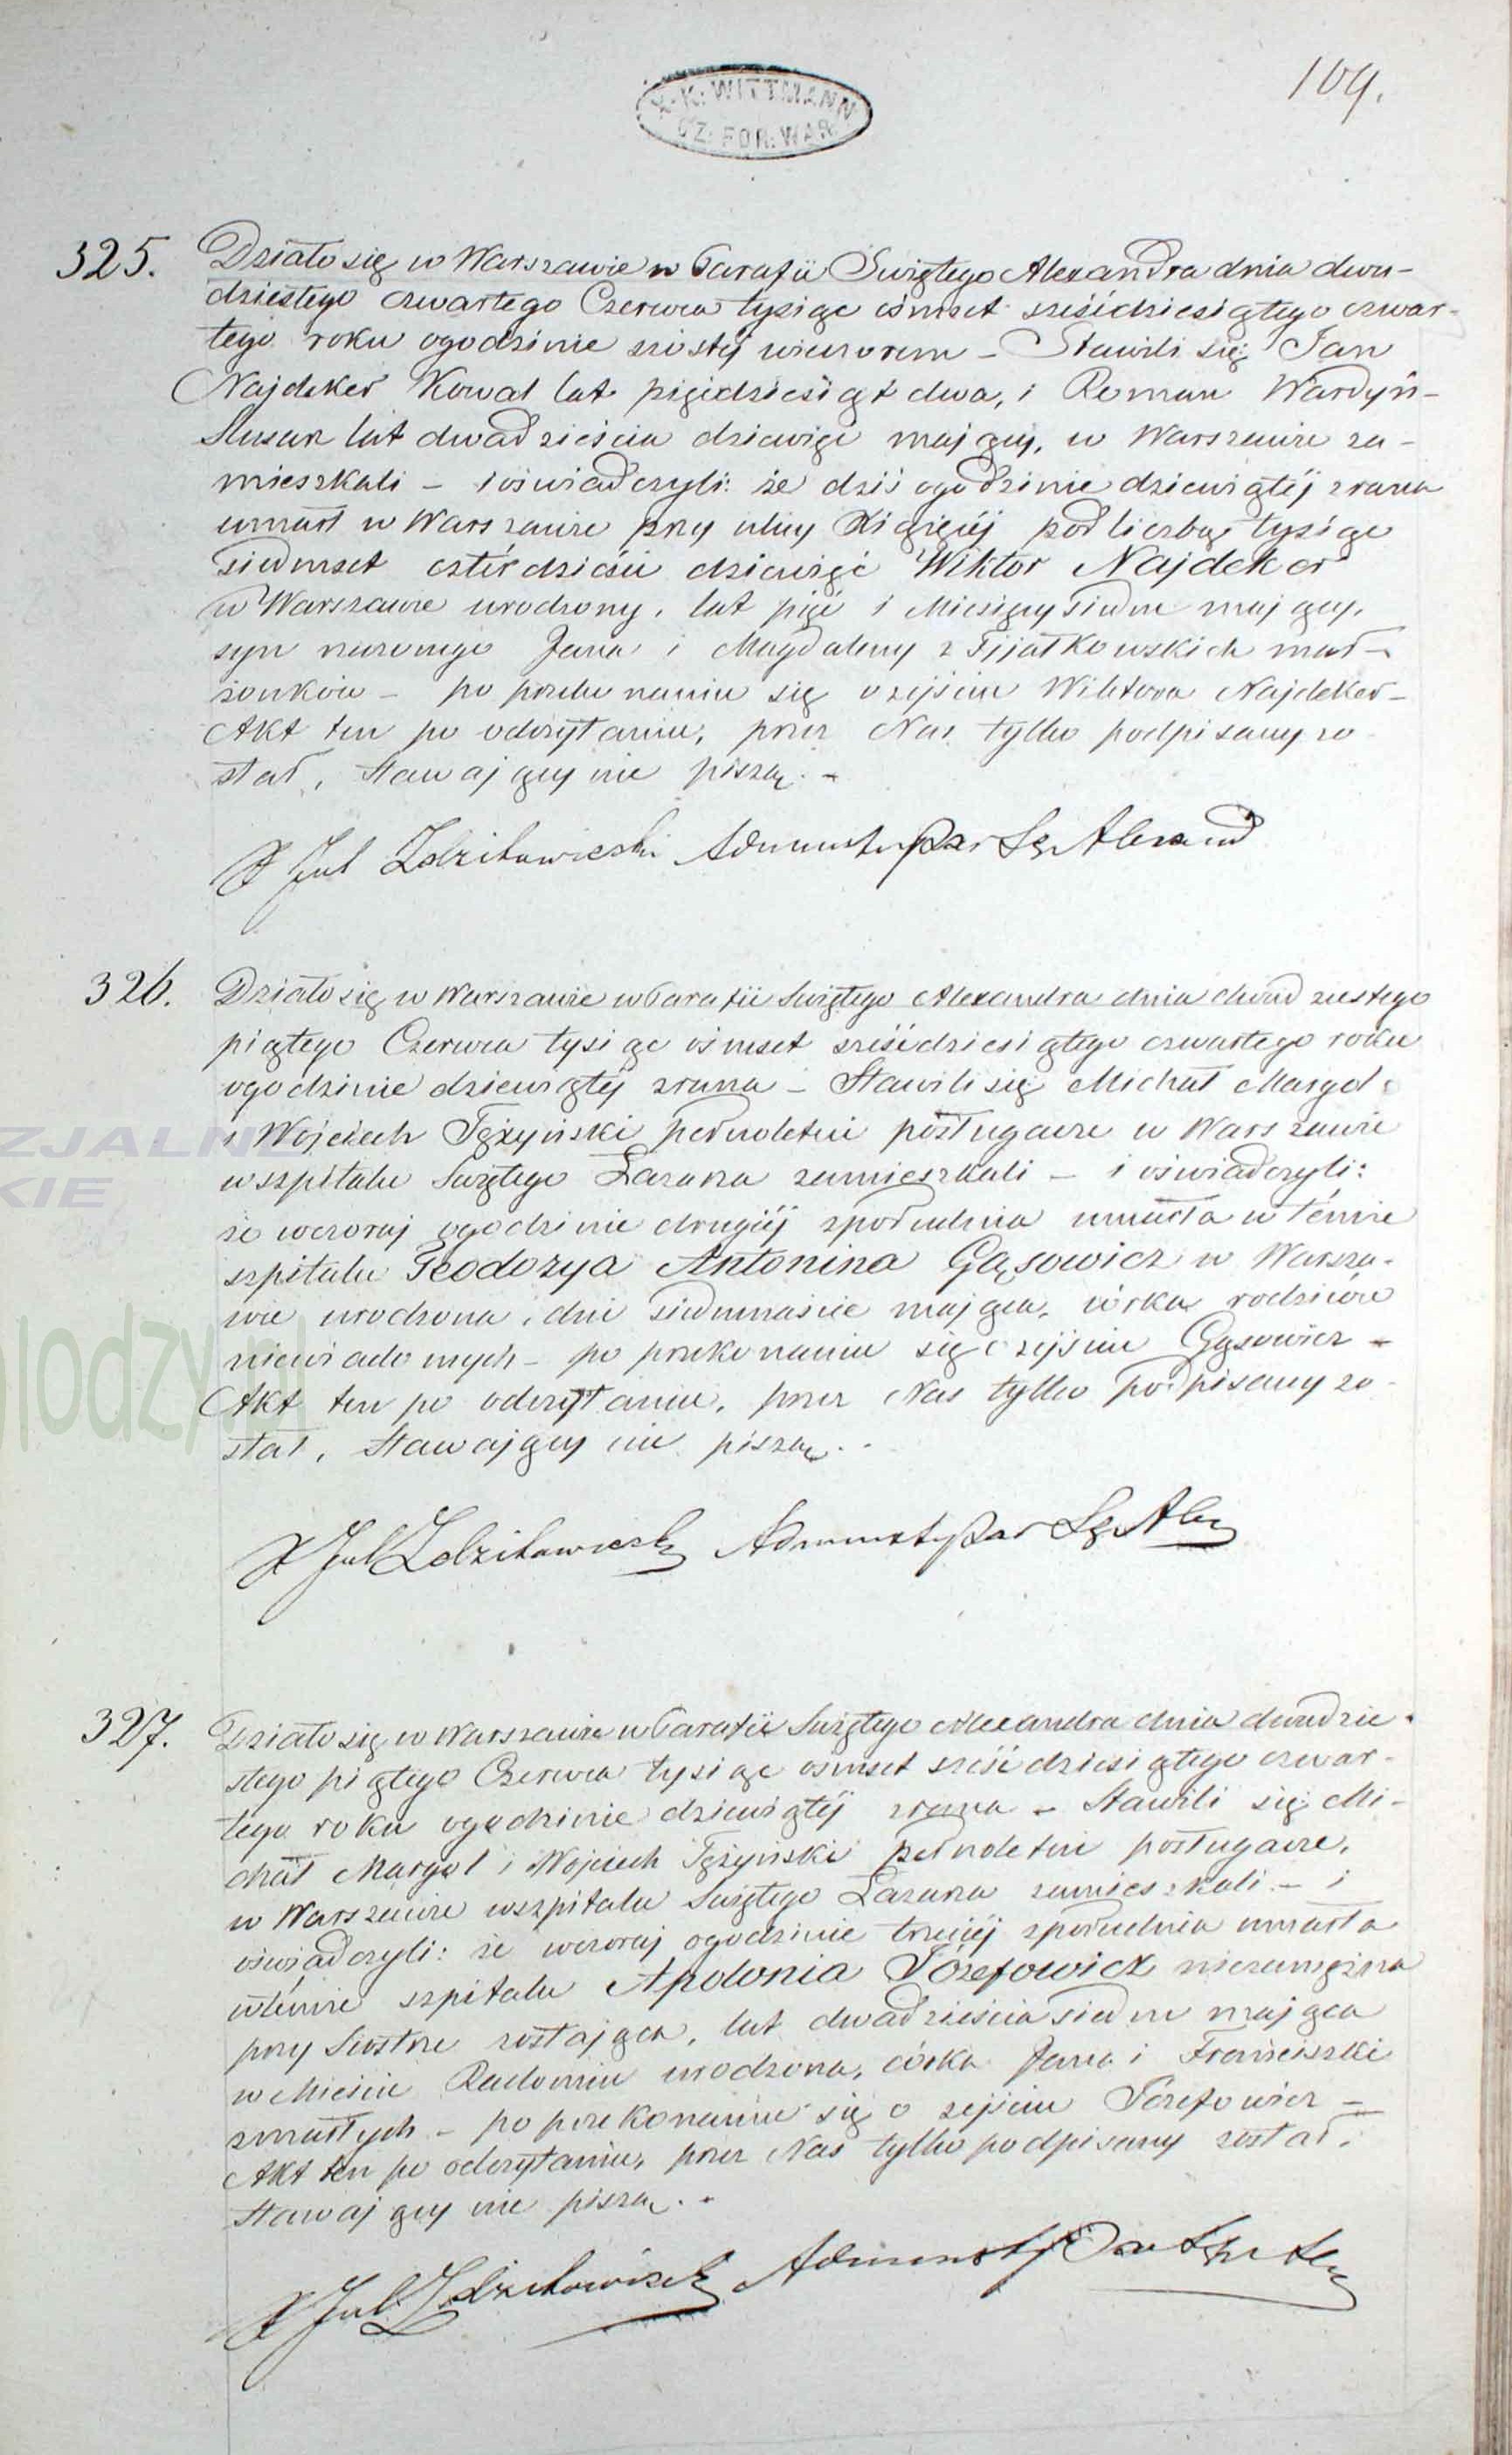 109.
X. K. WITTMANN
CZ: FOR: WAR:
325. Działo się w Warszawie w Parafii Swiętego Alexandra dnia dwu-
dziestego czwartego Czerwca tysiąc ośmset sześćdziesiątego czwar-
tego roku ogodzinie szósty wieczorem – Stawili się Jan
Najdeker Kowal lat pięćdziesiąt dwa, i Roman Wardyń-
Slusarz lat dwadzieścia dziewięć mający, w Warszawie za-
mieszkali – i oświadczyli: że dziś ogodzinie dziewiątej zrana
umarł w Warszawie przy ulicy Xiążęcej pod liczbą tysiąc
siedmset czterdzieści dziewięć Wiktor Najdeker
w Warszawie urodzony, lat pięć i Miesięcy siedm mający,
syn narzonego Jana i Magdaleny z Fijałkowskich mał-
żonków – po przekonaniu się o zejściu Wiktora Najdeker –
Akt ten po odczytaniu, przez Nas tylko podpisany zo-
stał, Stawający nie piszą. –
X Jul Zdzitowiecki Administr Par Sgo Alexand
326. Działo się w Warszawie w Parafii Swiętego Alexandra dnia dwudziestego
piątego Czerwca tysiąc ośmset sześćdziesiątego czwartego roku
ogodzinie dziewiątej zrana – Stawili się Michał Margol
i Wojciech Tężyński pełnoletni posługacze w Warszawie
wszpitalu Swiętego Łazarza zamieszkali – i oświadczyli:
że wczoraj ogodzinie drugiej zpołudnia umarła w témże
szpitalu Teodozya Antonina Gąsowicz w Warsza-
wie urodzona, dni siedmnaście mająca, córka rodziców
niewiadomych – po przekonaniu się o zejściu Gąsowicz –
Akt ten po odczytaniu, przez Nas tylko podpisany zo-
stał, Stawający nie piszą. –
X Jul Zdzitowiecki Administr Par Sgo Alex
327. Działo się w Warszawie w Parafii Swiętego Alexandra dnia dwudzie-
stego piątego Czerwca tysiąc ośmset sześćdziesiątego czwar-
tego roku ogodzinie dziewiątej zrana – Stawili się Mi-
chał Margol i Wojciech Tężyński pełnoletni posługacze,
w Warszawie wszpitalu Swiętego Łazarza zamieszkali – i
oświadczyli: że wczoraj ogodzinie trzeciej zpołudnia umarła
wtémże szpitalu Apolonia Józefowicz niezamężna
przy Siostrze zostająca, lat dwadzieścia siedm mająca
w Mieście Radomiu urodzona, córka Jana i Franciszki
zmarłych – po przekonaniu się o zejściu Józefowicz –
Akt ten po odczytaniu, przez Nas tylko podpisany został,
Stawający nie piszą. –
X Jul Zdzitowiecki Administr Par Sgo Alex
ZJALN
KIE
lodzy.pl